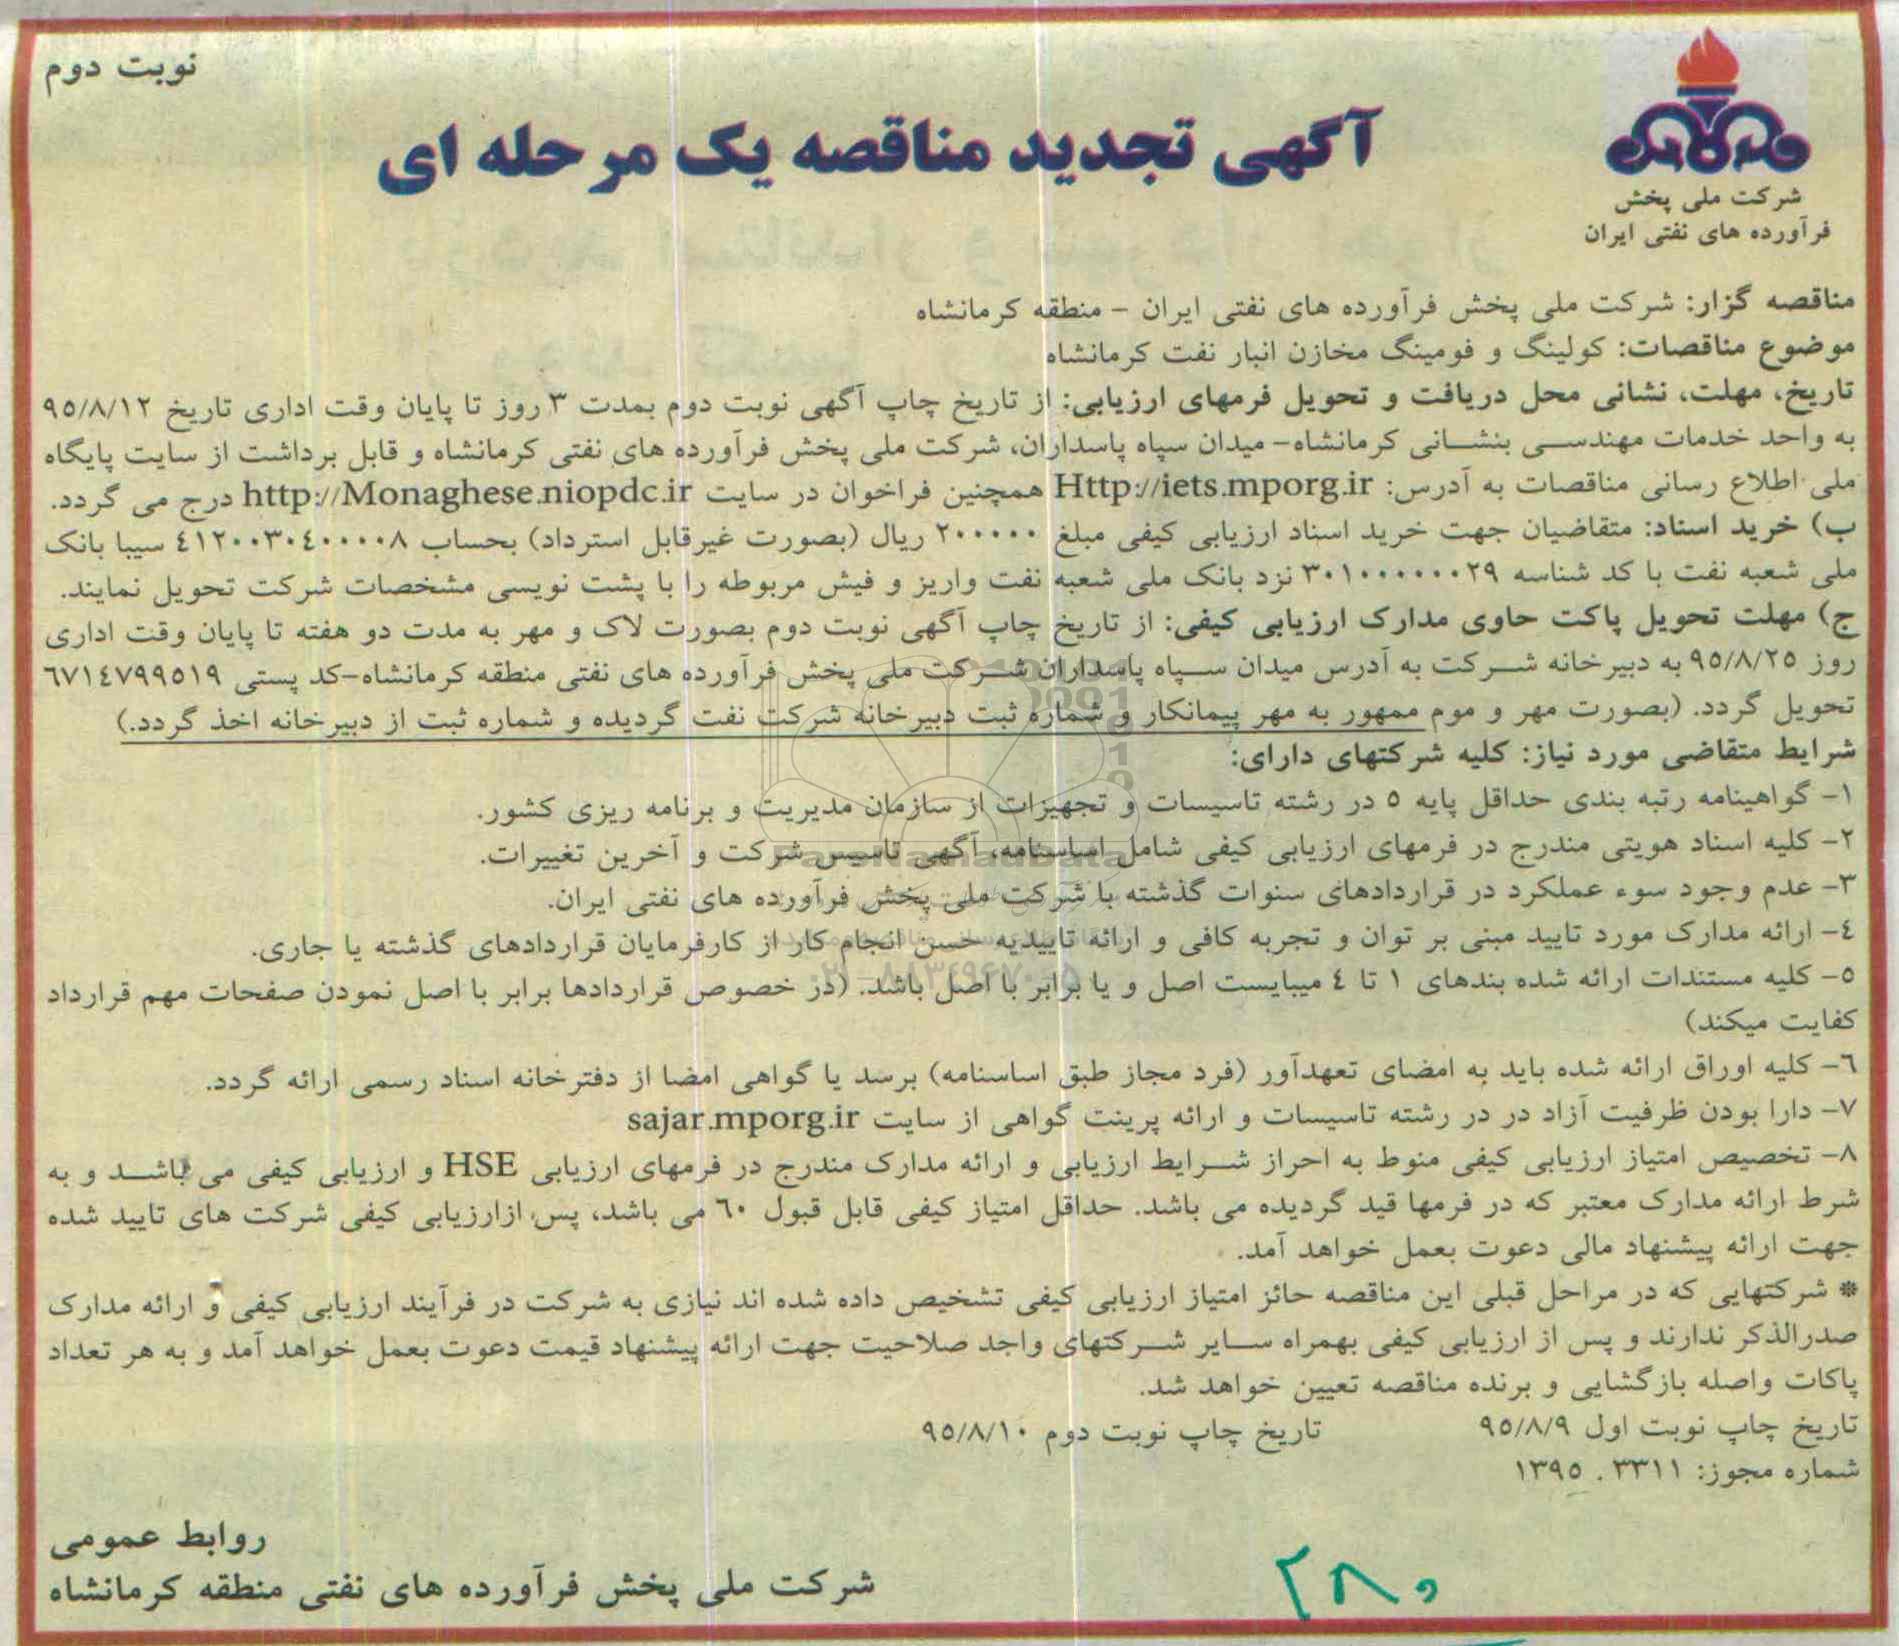 نوبت دوم
آگهی تجدید مناقصه یک مرحله ای
شرکت ملی پخش
فرآورده های نفتی ایران
مناقصه گزار: شرکت ملی پخش فرآورده های نفتی ایران - منطقه کرمانشاه
موضوع مناقصات: کولینگ و فومینگ مخازن انبار نفت کرمانشاه
تاریخ، مهلت، نشانی محل دریافت و تحویل فرمهای ارزیابی: از تاریخ چاپ آگهی نوبت دوم بمدت ۳ روز تا پایان وقت اداری تاریخ ۹۵/۸/۱۲
به واحد خدمات مهندسی بنشانی کرمانشاه- میدان سپاه پاسداران، شرکت ملی پخش فرآورده های نفتی کرمانشاه و قابل برداشت از سایت پایگاه
ملی اطلاع رسانی مناقصات به آدرس: Http://iets.mporg.ir همچنین فراخوان در سایت http://Monaghese.niopdc.ir درج می گردد.
ب) خرید اسناد: متقاضیان جهت خرید اسناد ارزیابی کیفی مبلغ ۲۰۰۰۰۰ ریال (بصورت غیرقابل استرداد) بحساب ۴۱۲۰۰۳۰۴۰۰۰۰۸ سیبا بانک
ملی شعبه نفت با کد شناسه ۳۰۱۰۰۰۰۰۰۰۲۹ نزد بانک ملی شعبه نفت واریز و فیش مربوطه را با پشت نویسی مشخصات شرکت تحویل نمایند.
ج) مهلت تحویل پاکت حاوی مدارک ارزیابی کیفی: از تاریخ چاپ آگهی نوبت دوم بصورت لاک و مهر به مدت دو هفته تا پایان وقت اداری
روز ۹۵/۸/۲۵ به دبیرخانه شرکت به آدرس میدان سپاه پاسداران شرکت ملی پخش فرآورده های نفتی منطقه کرمانشاه-کد پستی ۶۷۱۴۷۹۹۵۱۹
تحویل گردد. (بصورت مهر و موم ممهور به مهر پیمانکار و شماره ثبت دبیرخانه شرکت نفت گردیده و شماره ثبت از دبیرخانه اخذ گردد.)
شرایط متقاضی مورد نیاز: کلیه شرکتهای دارای:
۱- گواهینامه رتبه بندی حداقل پایه ۵ در رشته تاسیسات و تجهیزات از سازمان مدیریت و برنامه ریزی کشور.
۲- کلیه اسناد هویتی مندرج در فرمهای ارزیابی کیفی شامل اساسنامه، آگهی تاسیس شرکت و آخرین تغییرات.
۳- عدم وجود سوء عملکرد در قراردادهای سنوات گذشته با شرکت ملی پخش فرآورده های نفتی ایران.
۴- ارائه مدارک مورد تایید مبنی بر توان و تجربه کافی و ارائه تاییدیه حسن انجام کار از کارفرمایان قراردادهای گذشته یا جاری.
۵- کلیه مستندات ارائه شده بندهای ۱ تا ۴ میبایست اصل و یا برابر با اصل باشد. (در خصوص قراردادها برابر با اصل نمودن صفحات مهم قرارداد
کفایت میکند)
۶- کلیه اوراق ارائه شده باید به امضای تعهدآور (فرد مجاز طبق اساسنامه) برسد یا گواهی امضا از دفترخانه اسناد رسمی ارائه گردد.
۷- دارا بودن ظرفیت آزاد در در رشته تاسیسات و ارائه پرینت گواهی از سایت sajar.mporg.ir
۸- تخصیص امتیاز ارزیابی کیفی منوط به احراز شرایط ارزیابی و ارائه مدارک مندرج در فرمهای ارزیابی HSE و ارزیابی کیفی می باشد و به
شرط ارائه مدارک معتبر که در فرمها قید گردیده می باشد. حداقل امتیاز کیفی قابل قبول ۶۰ می باشد، پس ازارزیابی کیفی شرکت های تایید شده
جهت ارائه پیشنهاد مالی دعوت بعمل خواهد آمد.
* شرکتهایی که در مراحل قبلی این مناقصه حائز امتیاز ارزیابی کیفی تشخیص داده شده اند نیازی به شرکت در فرآیند ارزیابی کیفی و ارائه مدارک
صدرالذکر ندارند و پس از ارزیابی کیفی بهمراه سایر شرکتهای واجد صلاحیت جهت ارائه پیشنهاد قیمت دعوت بعمل خواهد آمد و به هر تعداد
پاکات واصله بازگشایی و برنده مناقصه تعیین خواهد شد.
تاریخ چاپ نوبت اول ۹۵/۸/۹ تاریخ چاپ نوبت دوم ۹۵/۸/۱۰
شماره مجوز: ۳۳۱۱ . ۱۳۹۵
روابط عمومی
شرکت ملی پخش فرآورده های نفتی منطقه کرمانشاه